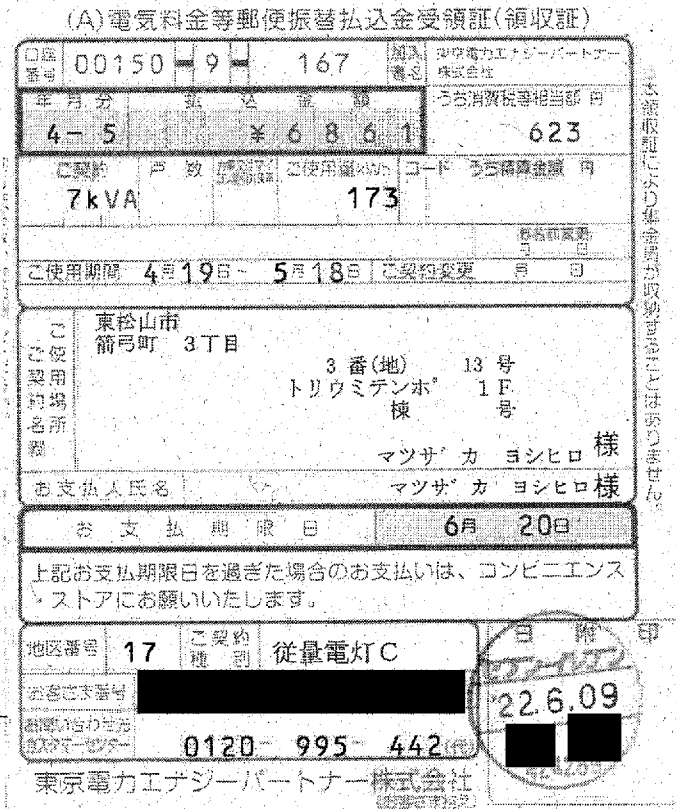 (A)電気料金等郵便振替払込金受領証(領収証)
口座番号 00150-9-167 加入者名 東京電力エナジーパートナー株式会社
年月分 払込金額 うち消費税等相当額 円
4-5 ¥6861 623
ご契約 戸数 ご使用量kWh コード うち積算金額 円
7kVA 173
お名前変更
月 日
ご使用期間 4月19日~ 5月18日 ご契約変更 月 日
ご使用場所 ご契約名義
東松山市
箭弓町 3丁目
3番(地) 13号
トリウミテンポ 1F
棟 号
マツザカ ヨシヒロ様
お支払人氏名 マツザカ ヨシヒロ様
お支払期限日 6月 20日
上記お支払期限日を過ぎた場合のお支払いは、コンビニエンス
・ストアにお願いいたします。
地区番号 17 ご契約種別 従量電灯C
お客さま番号
お問い合わせ先 カスタマーセンター 0120- 995- 442(代)
東京電力エナジーパートナー株式会社
日附印
セブン-イレブン
'22.6.09
本領収証により集金員が収納することはありません。